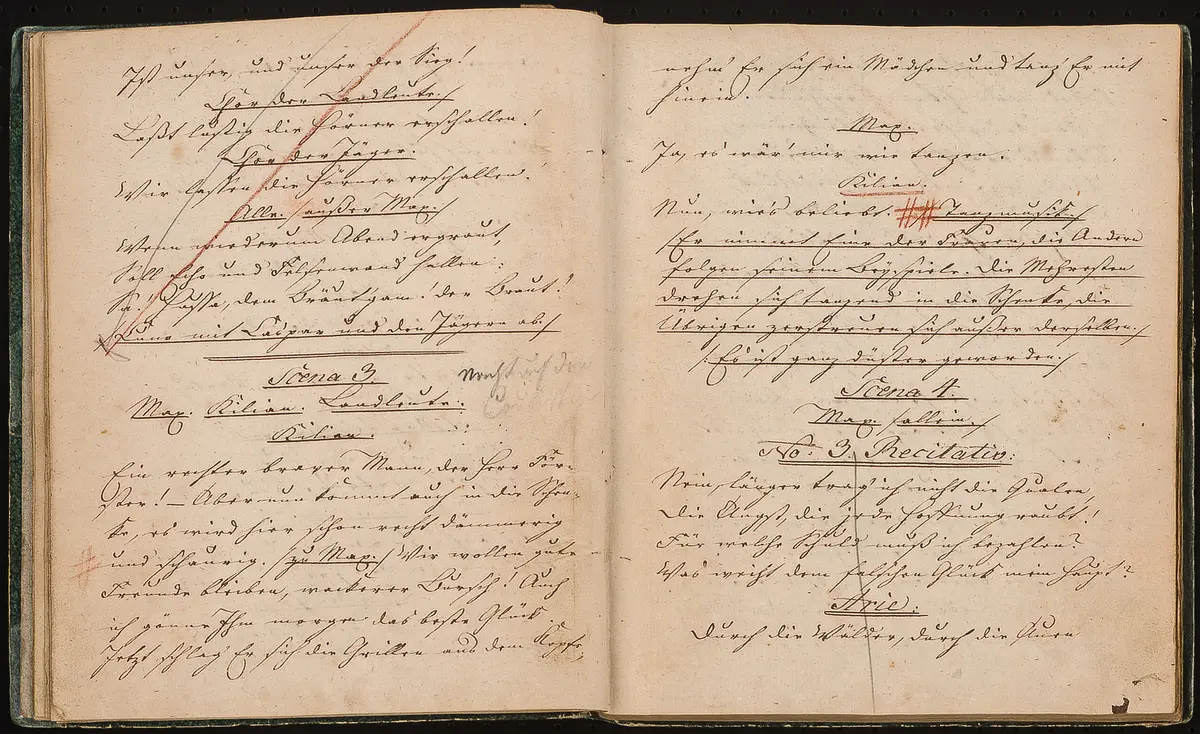 Ist unser, und unser der Sieg!
Chor der Landleute./
Laßt lustig die Hörner erschallen!
Chor der Jäger.
Wir lassen die Hörner erschallen!
Alle. /außer Max./
Wenn wiederum Abend ergraut,
Soll Echo und Felsenwand hallen:
Sa! Hussa, dem Bräutgam! der Braut!
/Kuno mit Caspar und den Jägern ab./
Scena 3.
Max. Kilian. Landleute.
Kilian.
Ein rechter braver Mann, der Herr För-
ster! – Aber nun kommt auch in die Schen-
ke, es wird hier schon recht dämmerig
und schaurig. /zu Max./ Wir wollen gute
Freunde bleiben, wackerer Bursch! Auch
ich gönne Ihm morgen das beste Glück.
Jetzt schlag' Er sich die Grillen aus dem Kopfe,
nehm' Er sich ein Mädchen und tanz' Er mit
hinein.
Max.
Ja, es wär' mir wie tanzen.
Kilian.
Nun, wie's beliebt. Tanzmusik./
/Er nimmt Eine der Frauen, die Andern
folgen seinem Beyspiele. Die Mehresten
drehen sich tanzend in die Schenke, die
Übrigen zerstreuen sich außer derselben./
/Es ist ganz düster geworden./
Scena 4.
Max. /allein./
No. 3. Recitativ:
Nein, länger trag' ich nicht die Qualen,
Die Angst, die jede Hoffnung raubt!
Für welche Schuld muß ich bezahlen?
Was weiht dem falschen Glück mein Haupt?
Arie:
Durch die Wälder, durch die Auen